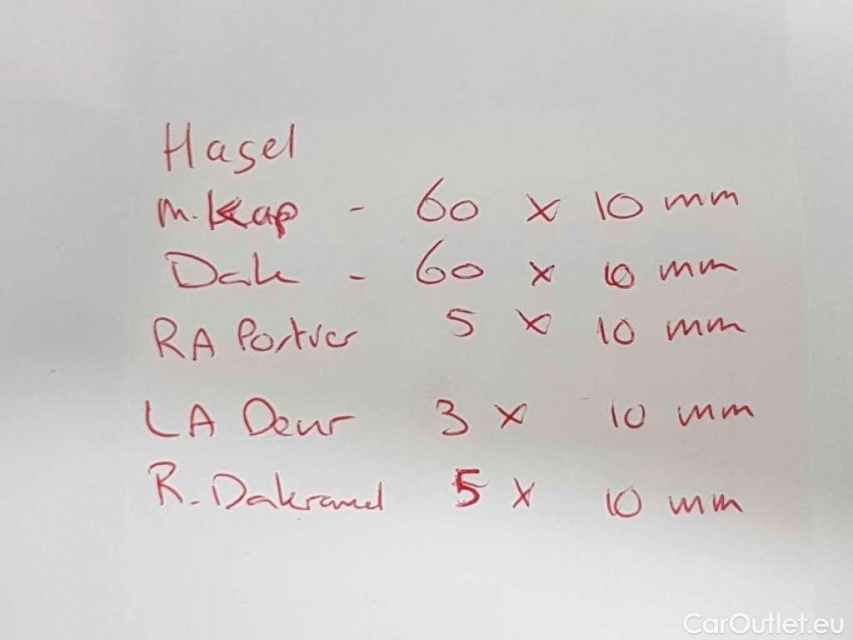 Hagel
M. Kap - 60 x 10 mm
Dak - 60 x 10 mm
RA Portier 5 x 10 mm
LA Deur 3 x 10 mm
R. Dakrand 5 x 10 mm
CarOutlet.eu